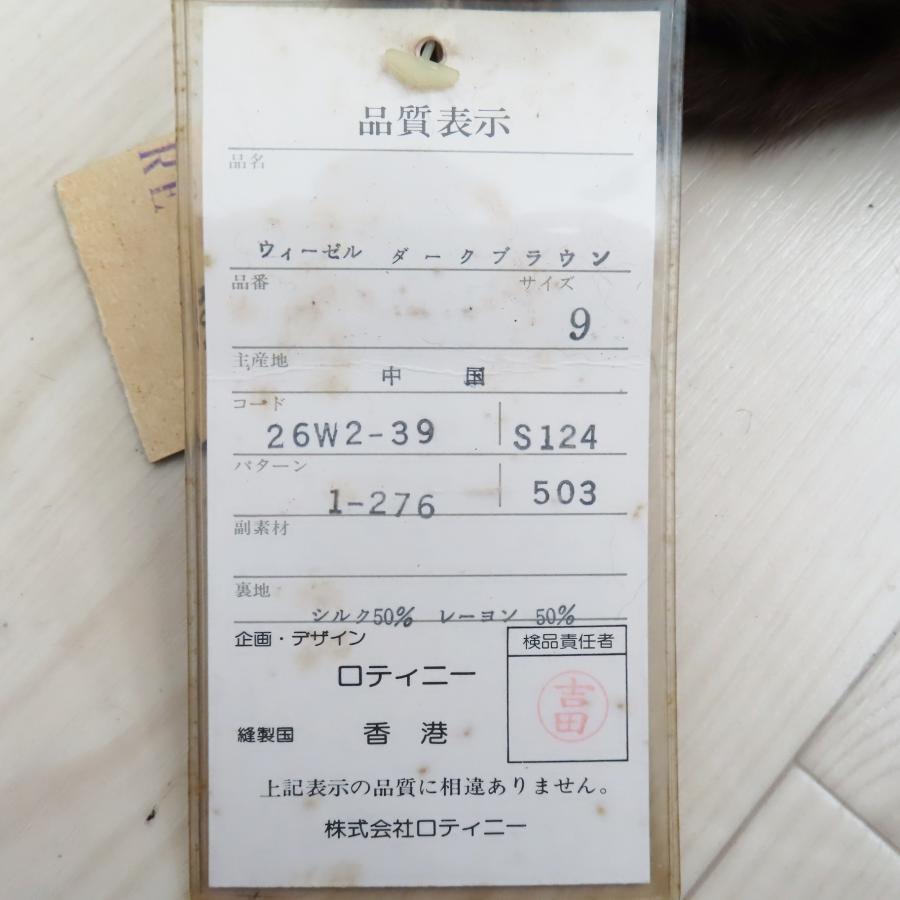 品質表示
品名
ウィーゼル ダークブラウン
品番 サイズ
9
主産地
中 国
コード
26W2-39 S124
パターン
1-276 503
副素材
裏地
シルク50% レーヨン 50%
企画・デザイン
ロティニー
検品責任者
吉田
縫製国 香 港
上記表示の品質に相違ありません。
株式会社ロティニー
RE